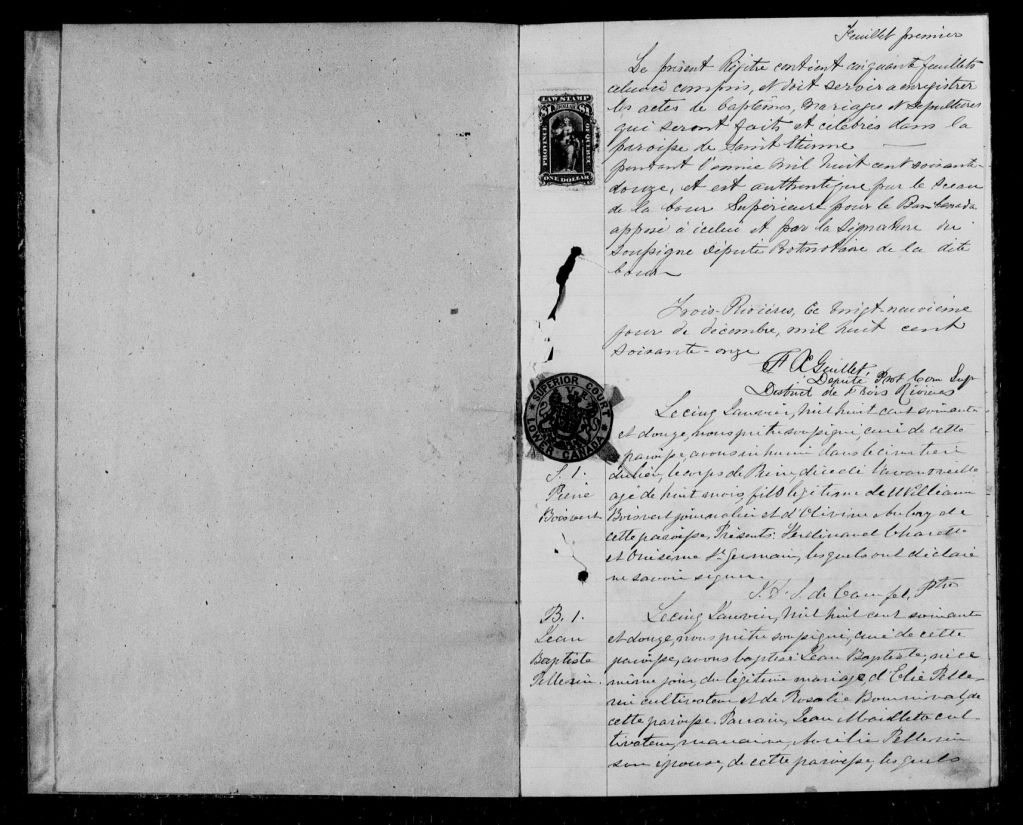 Feuillet premier
Le présent Régitre contient cinquante feuillets
celui-ci compris, et doit servir a enregistrer
les actes de baptêmes, mariages et sépultures
qui seront faits et célébrés dans la
paroisse de Saint Etienne
pendant l'année mil huit cent soixante-
douze, et est authentiqué par le sceau
de la Cour Supérieure pour le Bas-Canada
apposé à icelui et par la signature du
soussigné Député Protonotaire de la dite
Cour
LAW STAMP
$1 $1
PROVINCE OF QUEBEC
ONE DOLLAR
Trois-Rivières, ce vingt-neuvième
jour de décembre, mil huit cent
soixante-onze
Guillet,
Député Prot Cour Sup
District de Trois Rivieres
SUPERIOR COURT
LOWER CANADA
S. 1.
Pierre
Boisvert
Le cinq Janvier, mil huit cent soixante
et douze, nous prêtre soussigné, curé de cette
paroisse, avons inhumé dans le cimetière
du lieu, le corps de Pierre, décédé l'avant veille
agé de huit mois fils légitime de William
Boisvert journalier et d'Olivine Aubry de
cette paroisse. Présents: Ferdinand Charette
et Onisime St Germain, lesquels ont déclaré
ne savoir signer.
de Ptre
B. 1.
Jean
Baptiste
Pellerin
Le cinq Janvier, mil huit cent soixante
et douze, nous prêtre soussigné, curé de cette
paroisse, avons baptisé Jean Baptiste, né ce
même jour, du légitime mariage d'Elie Pelle-
rin cultivateur et de Rosalie Bournival, de
cette paroisse. Parrain, Jean Mailletto cul-
tivateur, marraine, Aurélie Pellerin
son épouse, de cette paroisse, lesquels